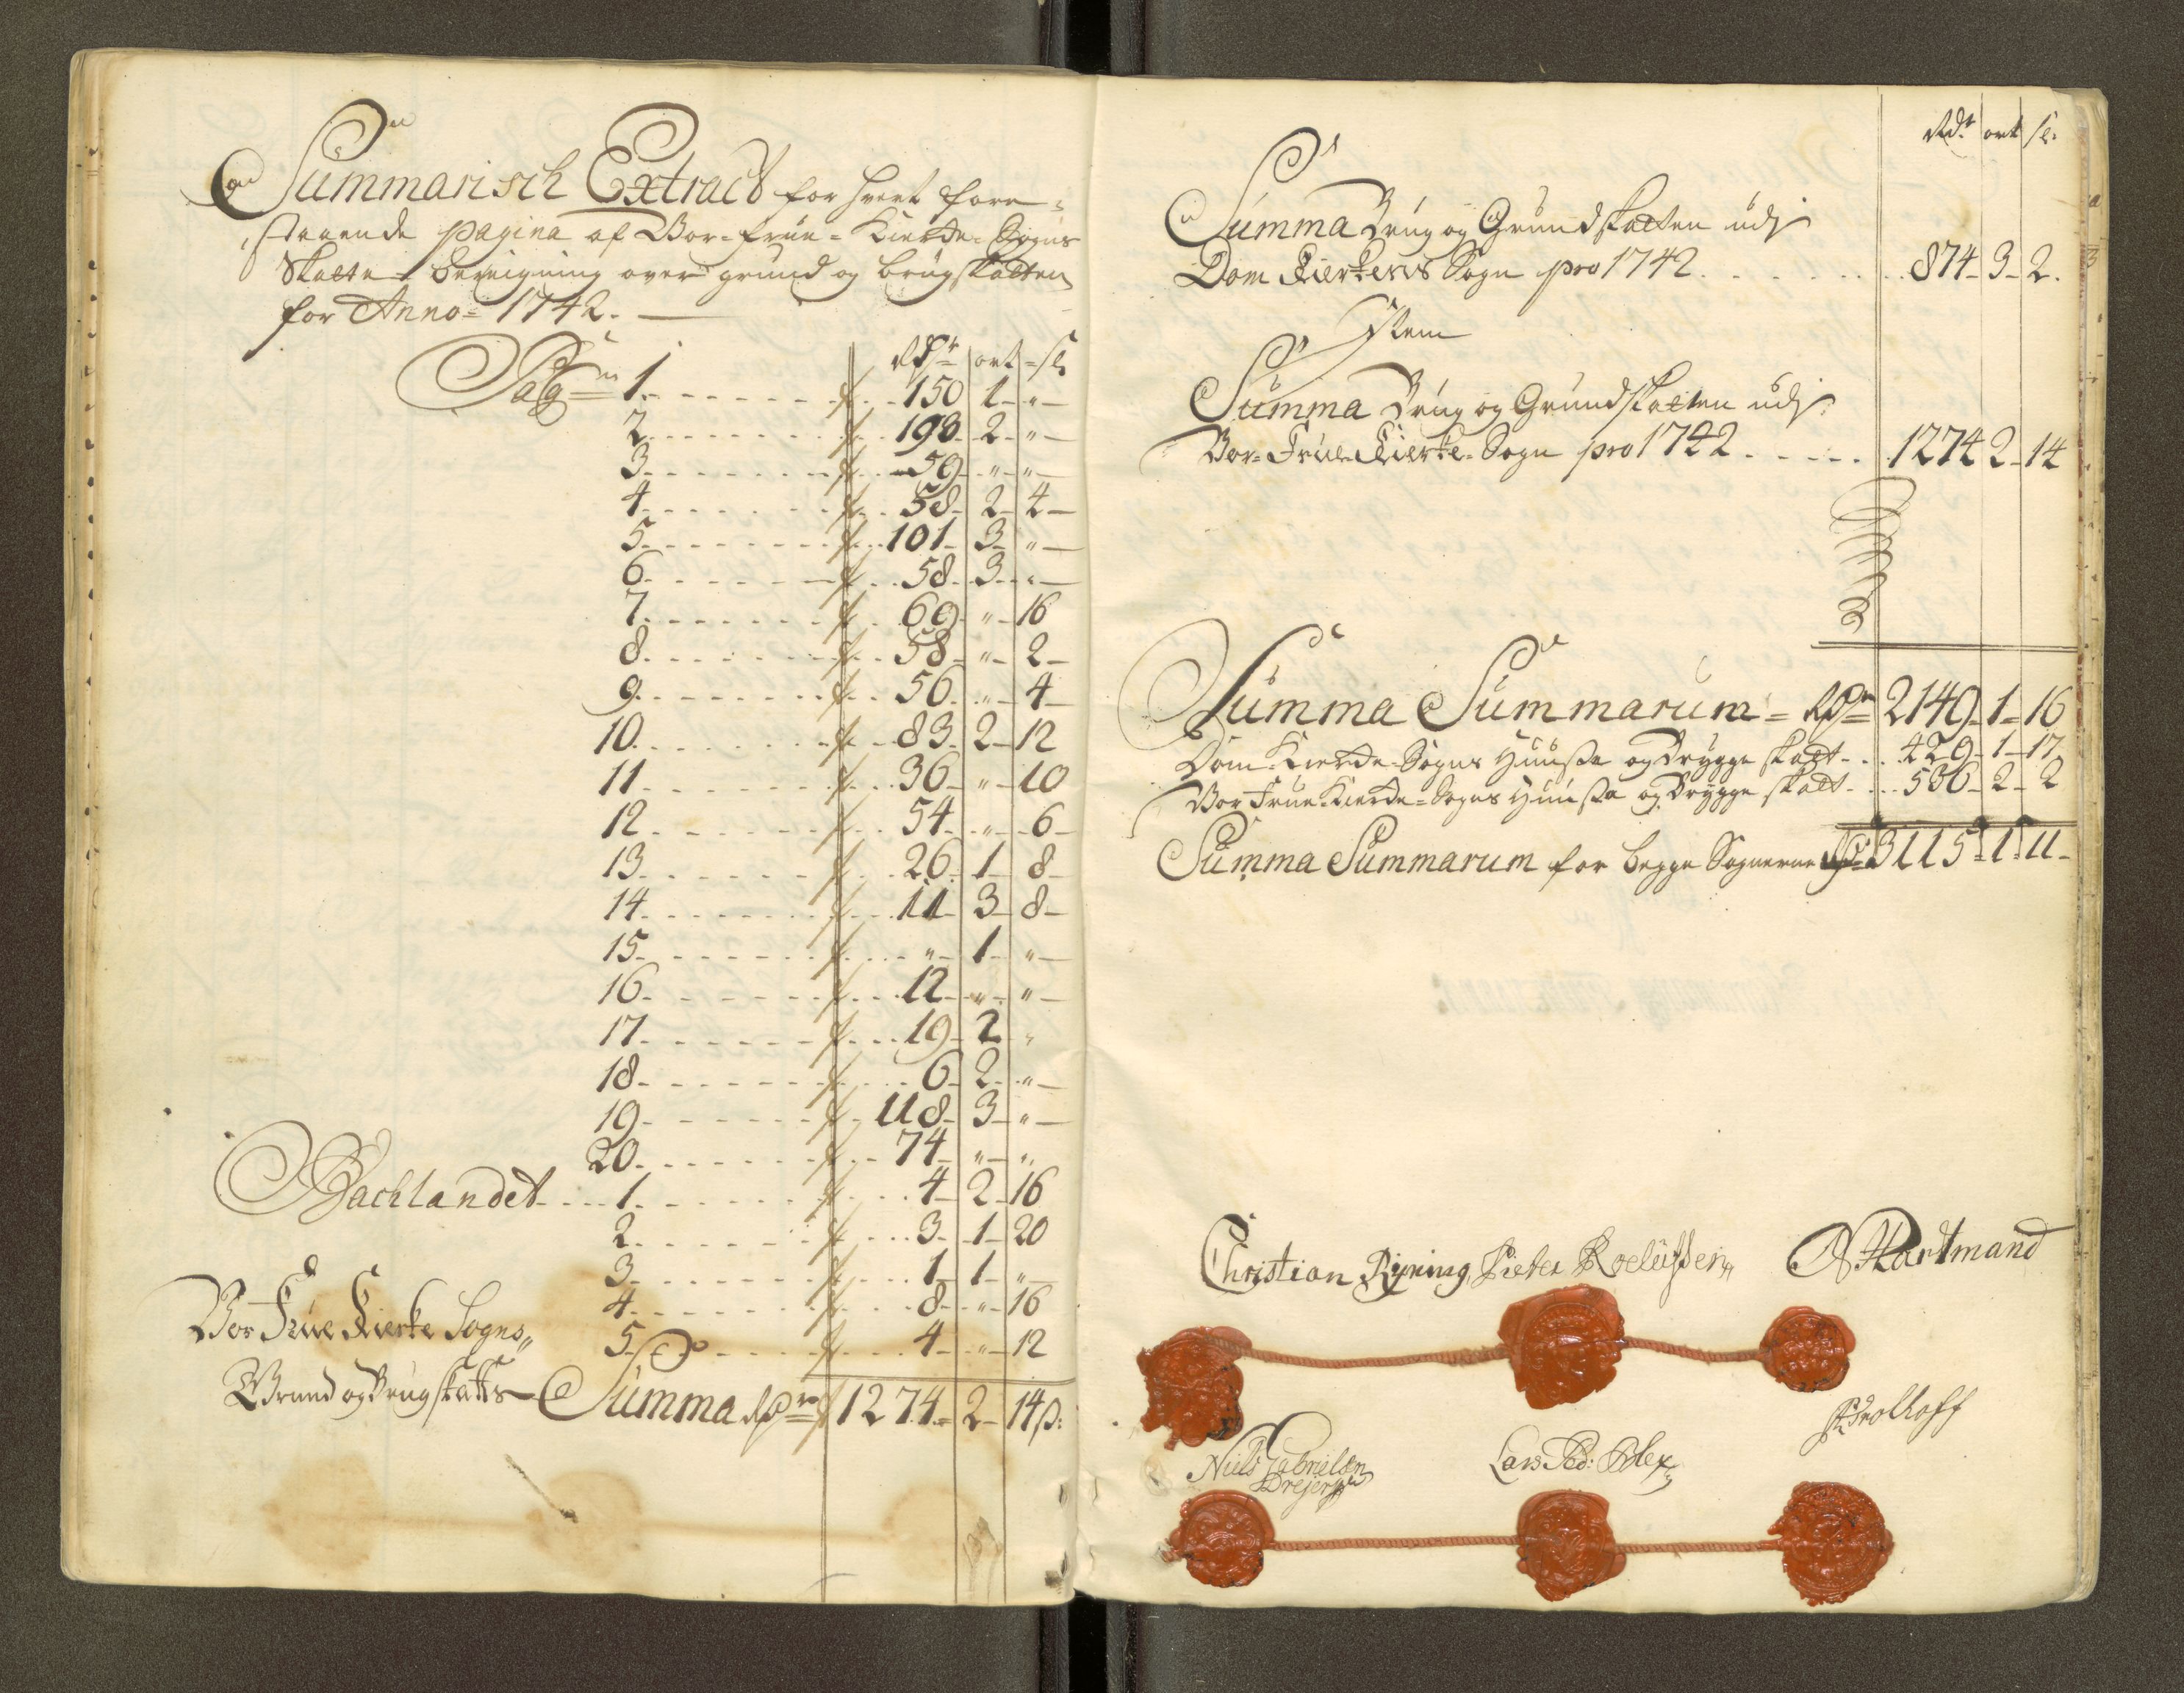 Summarisch Extract for hvert fore=
staaende pagina af Vor=frue=Kierke=Sogns
Skatte=bereigning over grund og brugskatten
for Anno=1742.
Rdr ort sl
Pag 1. 150 1 "
2. 198 2 "
3. 59 " "
4. 58 2 4
5. 101 3 "
6. 58 3 "
7. 69 " 16
8. 58 " 2
9. 56 " 4
10. 83 2 12
11. 36 " 10
12. 54 " 6
13. 26 1 8
14. 11 3 8
15. " 1 "
16. 12 " "
17. 19 2 "
18. 6 2 "
19. 118 3 "
20. 74 " "
Bachlandet 1. 4 2 16
2. 3 1 20
3. 1 1 "
4. 8 " 16
Vor Frue Kierke Sogns
5. 4 " 12
Grund og Brugskatts Summa Rdr 1274 2 14 s:
Rdr ort sl:
Summa Brug og Grundskatten udj
Dom Kierkens Sogn pro 1742 874 3 2.
Item
Summa Brug og Grundskatten udj
Vor=Frue Kierke=Sogn pro 1742 1274 2 14
Summa Summarum = Rdr 2149 1 16
Dom=Kierke=Sogns Huusse og Brygge skatt 429 1 17
Vor Frue=Kierke=Sogns Huusse og Brygge skatt 536 2 2
Summa Summarum for begge Sognerne Rdr 3115 1 11
Christian Ryning Pieter Roelüfsen Hartmand
Niels Gabrielsen
Drejer
Lars Ped:
Brolkoff